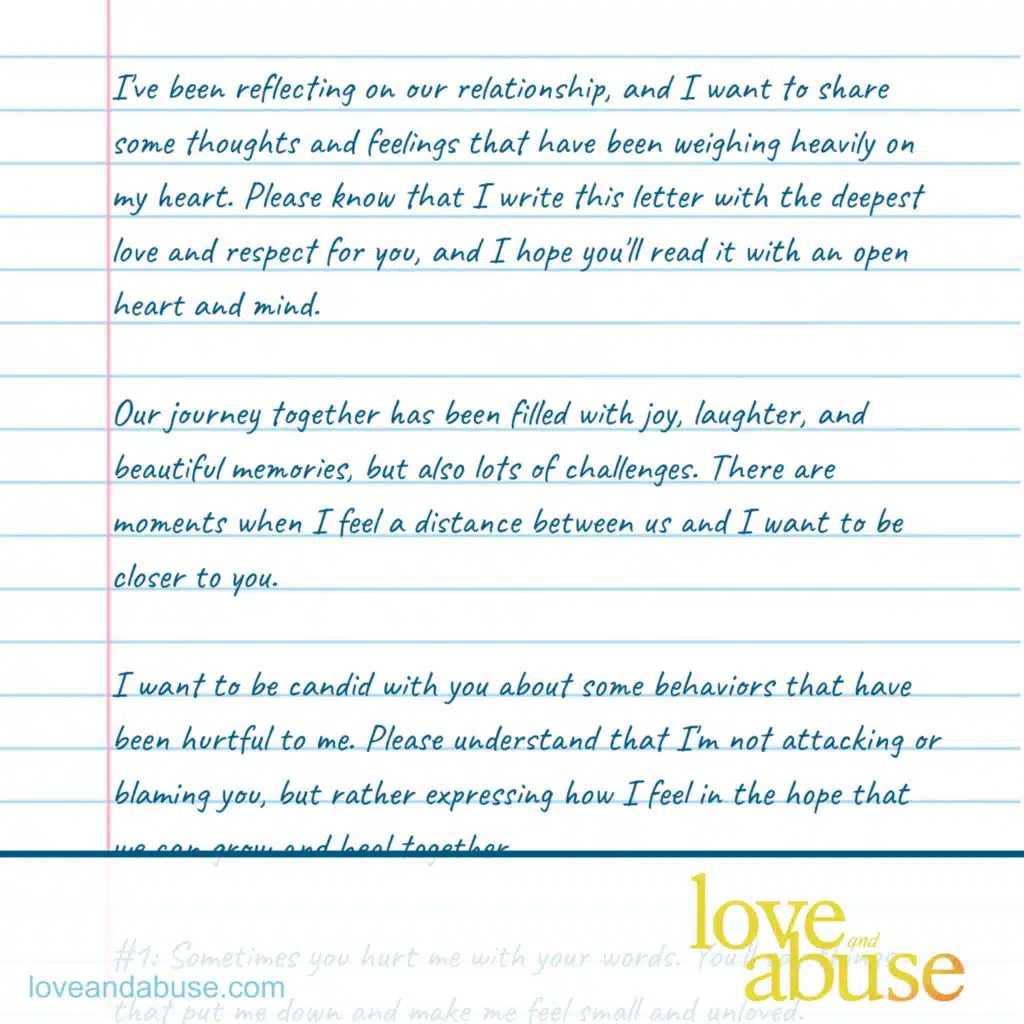 I've been reflecting on our relationship, and I want to share
some thoughts and feelings that have been weighing heavily on
my heart. Please know that I write this letter with the deepest
love and respect for you, and I hope you'll read it with an open
heart and mind.
Our journey together has been filled with joy, laughter, and
beautiful memories, but also lots of challenges. There are
moments when I feel a distance between us and I want to be
closer to you.
I want to be candid with you about some behaviors that have
been hurtful to me. Please understand that I'm not attacking or
blaming you, but rather expressing how I feel in the hope that
we can grow and heal together
#1: Sometimes you hurt me with your words. You'll
that put me down and make me feel small and unloved.
love and abuse
loveandabuse.com